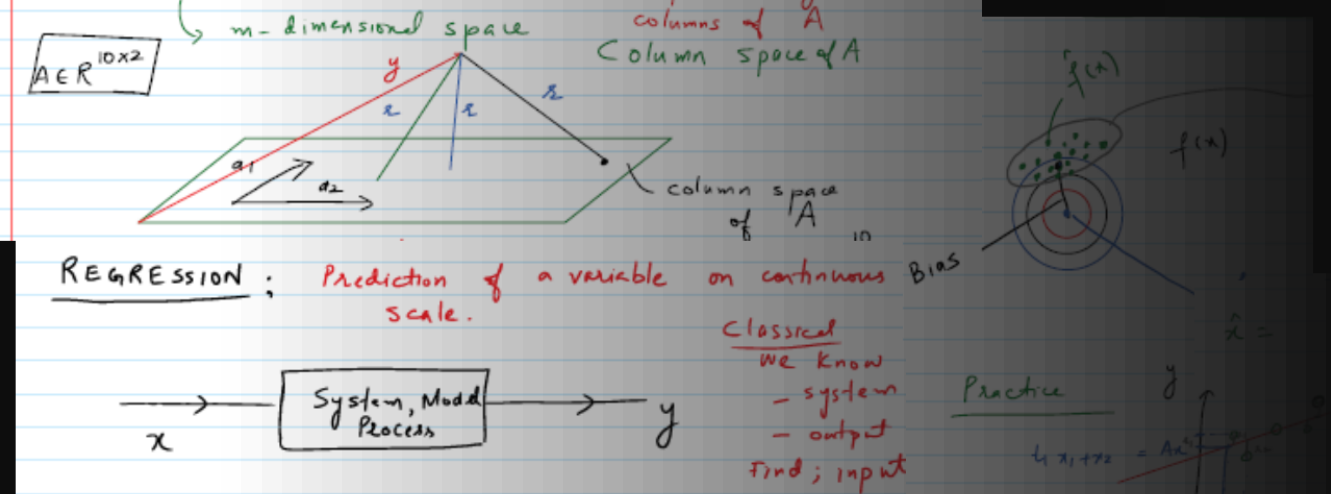 m-dimensional space
columns of A
Column space of A
A ∈ R^10×2
y
r
r
r
a1
a2
column space
of A
10
f̂(x)
f(x)
Bias
REGRESSION : Prediction of a variable on continuous
scale.
Classical
We know
- system
- output
Find ; input
x
System, Model
Process
y
x̂ =
Practice
y